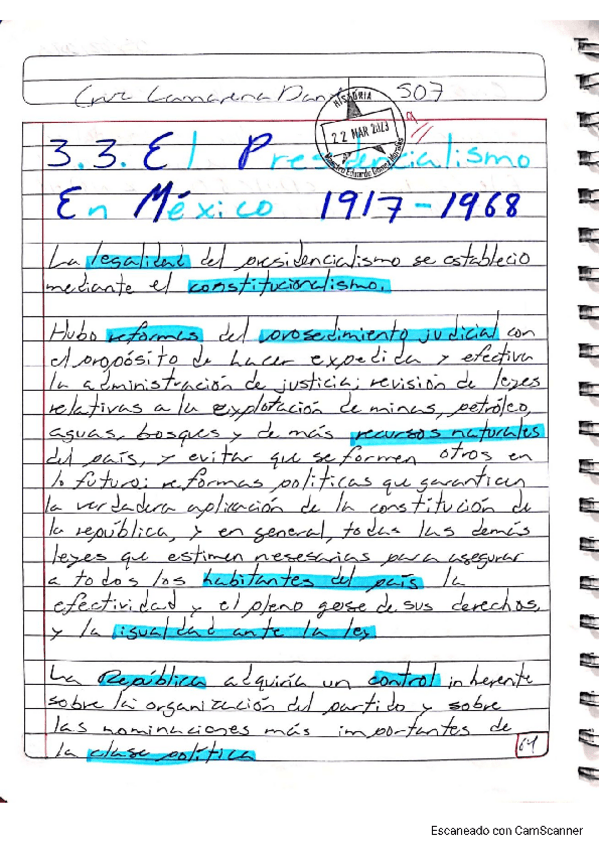 Cruz Camarena Dani 507
HISTORIA
22 MAR 2023
3.3. El Presidencialismo
En México 1917-1968
La legalidad del presidencialismo se establecio
mediante el constitucionalismo.
Hubo reformas del prosedimiento judicial con
el propósito de hacer expedida y efectiva
la administración de justicia; revisión de leyes
relativas a la explotación de minas, petróleo,
aguas, bosques y de más recursos naturales
del país, y evitar que se formen otros en
lo futuro; reformas politicas que garanticen
la verdadera aplicación de la constitución de
la república, y en general, todas las demás
leyes que estimen nesesarias para asegurar
a todos los habitantes del país la
efectividad y el pleno gose de sus derechos,
y la igualdad ante la ley
La República adquiría un control inherente
sobre la organización del partido y sobre
las nominaciones más importantes de
la clase política
Escaneado con CamScanner